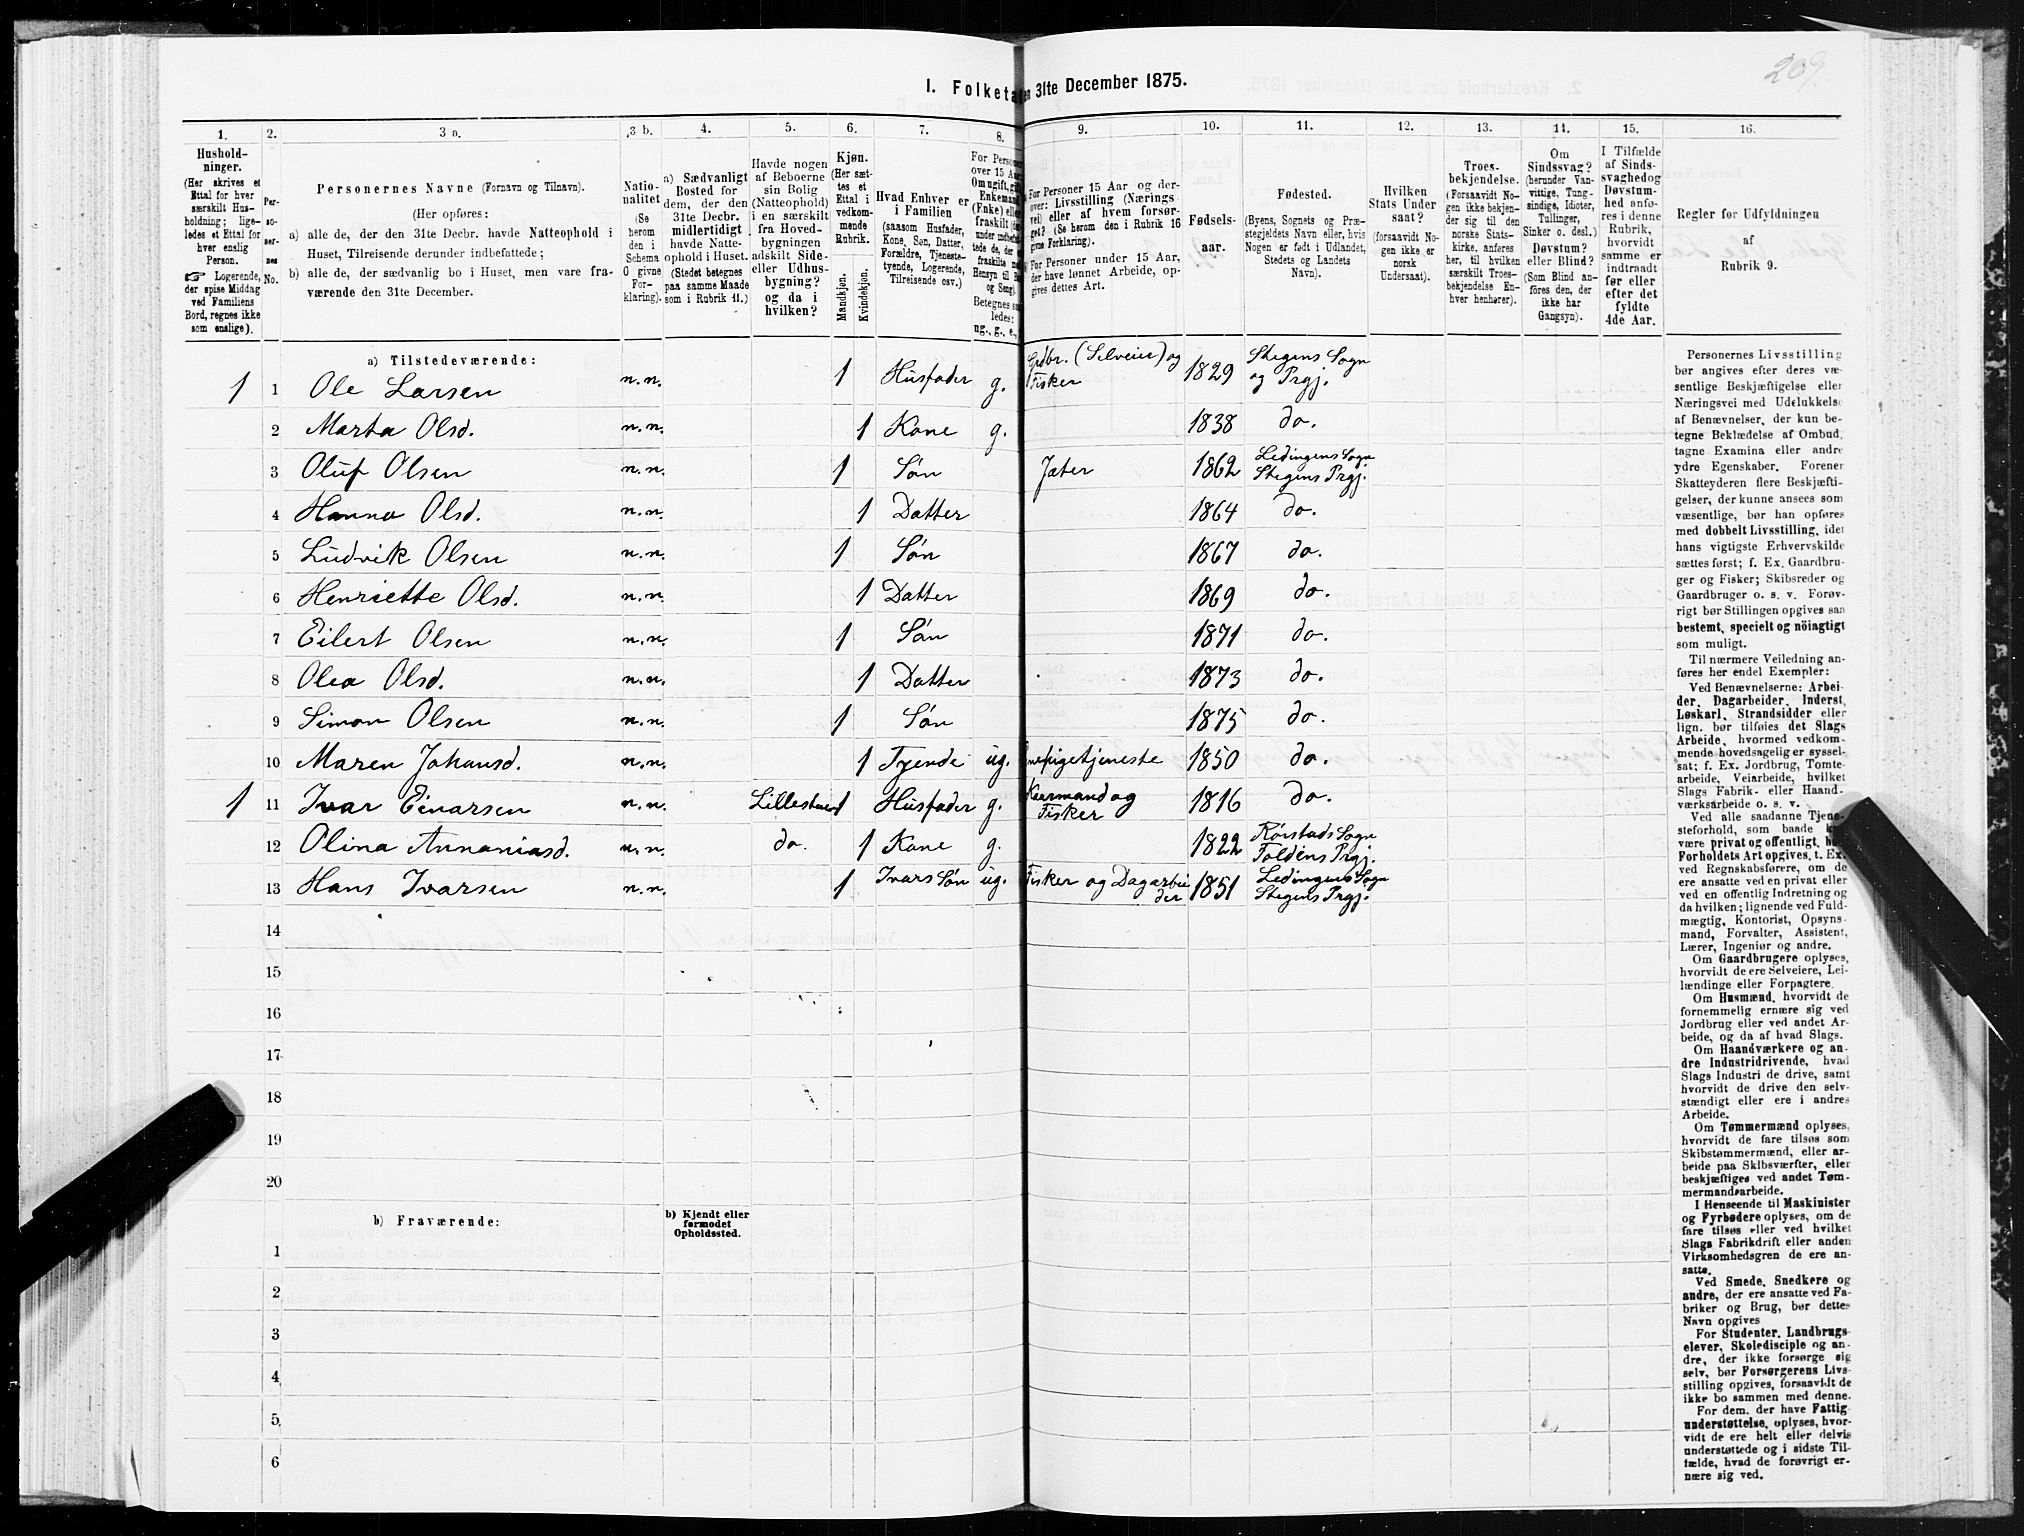 209.
I. Folketa en 31te December 1875.
1. 2. 3 a. 3 b. 4. 5. 6. 7. 8. 9. 10. 11. 12. 13. 14. 15. 16.
Hushold-
ninger.
(Her skrives et
Ettal for hver
særskilt Hus-
holdning; lige-
ledes et Ettal for
hver enslig
Person.
☞ Logerende,
der spise Middag
ved Familiens
Bord, regnes ikke
som enslige).
Per-
so-
ner-
nes
No.
Personernes Navne (Fornavn og Tilnavn).
(Her opføres:
a) alle de, der den 31te Decbr. havde Natteophold i
Huset, Tilreisende derunder indbefattede;
b) alle de, der sædvanlig bo i Huset, men vare fra-
værende den 31te December.
Natio-
nalitet
(Se
herom
den i
Schema
O givne
For-
klaring).
a) Sædvanligt
Bosted for
dem, der den
31te Decbr.
midlertidigt
havde Natte-
ophold i Huset.
(Stedet betegnes
paa samme Maade
som i Rubrik 11.)
Havde nogen
af Beboerne
sin Bolig
(Natteophold)
i en særskilt
fra Hoved-
bygningen
adskilt Side-
eller Udhus-
bygning?
og da i
hvilken?
Kjøn.
(Her sæt-
tes et
Ettal i
vedkom-
mende
Rubrik.
Mandkjøn.
Kvindekjøn.
Hvad Enhver er
i Familien
(saasom Husfader,
Kone, Søn, Datter,
Forældre, Tjeneste-
tyende, Logerende,
Tilreisende osv.)
For Personer
over 15 Aar:
Om ugift, gift,
Enkemand
(Enke) eller
fraskilt
under indbefat-
tede de, der
fraskilte
Hensyn til
og Seng).
Betegnes
ledes:
ug., g., e.,
For Personer 15 Aar og der-
over: Livsstilling (Nærings
vei) eller af hvem forsør-
get? (Se herom den i Rubrik 16
givne Forklaring).
For Personer under 15 Aar,
der have lønnet Arbeide, op-
gives dettes Art.
Fødsels-
aar.
Fødested.
(Byens, Sognets og Præ-
stegjeldets Navn eller, hvis
Nogen er født i Udlandet,
Stedets og Landets
Navn).
Hvilken
Stats Under
saat?
(forsaavidt No-
gen ikke er
norsk
Undersaat).
Troes-
bekjendelse.
(Forsaavidt No-
gen ikke bekjen-
der sig til den
norske Stats-
kirke, anføres
her, til hvilken
særskilt Troes-
bekjendelse En-
hver henhører).
Om
Sindssvag?
(herunder Van-
vittige, Tung-
sindige, Idioter,
Tullinger,
Sinker o. desl.)
Døvstum?
eller Blind?
(Som Blind an-
føres den, der
ikke har
Gangsyn).
I Tilfælde
af Sinds-
svaghedog
Døvstum-
hed anfø-
res i denne
Rubrik,
hvorvidt
samme er
indtraadt
før eller
efter det
fyldte
4de Aar.
Regler for Udfyldningen
af
Rubrik 9.
a) Tilstedeværende:
1 1 Ole Larsen n.n. 1 Husfader g. Grdbr. (Selveier) og Fisker 1829 Stegens Sogn og Prgj.
2 Marta Olsd. n.n. 1 Kone g. 1838 do.
3 Oluf Olsen n.n. 1 Søn Jæter 1862 Ledingens Sogn Stegens Prgj.
4 Hanna Olsd. n.n. 1 Datter 1864 do.
5 Ludvik Olsen n.n. 1 Søn 1867 do.
6 Henriette Olsd. n.n. 1 Datter 1869 do.
7 Eilert Olsen n.n. 1 Søn 1871 do.
8 Olea Olsd. n.n. 1 Datter 1873 do.
9 Simon Olsen n.n. 1 Søn 1875 do.
10 Maren Johansd. n.n. 1 Tyende ug. 1850 do.
1 11 Ivar Einarsen n.n. Lillestuen 1 Husfader g. Kaarmand og Fisker 1816 do.
12 Olina Annaniasd. n.n. do. 1 Kone g. 1822 Rørstads Sogn Foldens Prgj.
13 Hans Ivarsen n.n. 1 Ivars Søn ug. Fisker og Dagarbeider 1851 Ledingens Sogn Stegens Prgj.
14
15
16
17
18
19
20
b) Fraværende:
b) Kjendt eller
formodet
Opholdssted.
1
2
3
4
5
6
Personernes Livsstilling
bør angives efter deres væ-
sentlige Beskjæftigelse eller
Næringsvei med Udelukkelse
af Benævnelser, der kun be-
tegne Beklædelse af Ombud,
tagne Examina eller andre
ydre Egenskaber. Forener
Skatteyderen flere Beskjæfti-
gelser, der kunne ansees som
væsentlige, bør han opføres
med dobbelt Livsstilling, idet
hans vigtigste Erhvervskilde
sættes først; f. Ex. Gaardbru-
ger og Fisker; Skibsreder og
Gaardbruger o. s. v. Forøv-
rigt bør Stillingen opgives saa
bestemt, specielt og nöiagtigt
som muligt.
Til nærmere Veiledning an-
føres her endel Exempler:
Ved Benævnelserne: Arbei-
der, Dagarbeider, Inderst,
Løskarl, Strandsidder eller
lign. bør tilføies det Slags
Arbeide, hvormed vedkom-
mende hovedsagelig er syssel-
sat; f. Ex. Jordbrug, Tomte-
arbeide, Veiarbeide, hvilket
Slags Fabrik- eller Haand-
værksarbeide o. s. v.
Ved alle saadanne Tjene-
steforhold, som baade kan
være privat og offentligt, bør
Forholdets Art opgives, t. Ex.
ved Regnskabsførere, om de
ere ansatte ved en privat eller
ved en offentlig Indretning og
da hvilken; lignende ved Fuld-
mægtig, Kontorist, Opsyns-
mand, Forvalter, Assistent,
Lærer, Ingeniør og andre.
Om Gaardbrugere oplyses,
hvorvidt de ere Selveiere, Lei-
lændinge eller Forpagtere.
Om Husmænd, hvorvidt de
fornemmelig ernære sig ved
Jordbrug eller ved andet Ar-
beide, og da af hvad Slags.
Om Haandværkere og an-
dre Industridrivende, hvad
Slags Industri de drive, samt
hvorvidt de drive den selv-
stændigt eller ere i andres
Arbeide.
Om Tømmermænd oplyses,
hvorvidt de fare tilsøs som
Skibstømmermænd, eller ar-
beide paa Skibsværfter, eller
beskjæftiges ved andet Tøm-
mermandsarbeide.
I Henseende til Maskinister
og Fyrbødere oplyses, om de
fare tilsøs eller ved hvilket
Slags Fabrikdrift eller anden
Virksomhedsgren de ere an-
satte.
Ved Smede, Snedkere og
andre, der ere ansatte ved Fa-
briker og Brug, bør dettes
Navn opgives
For Studenter, Landbrugs-
elever, Skoledisciple og an-
dre, der ikke forsørge sig
selv, bør Forsørgerens Livs-
stilling opgives, forsaavidt de
ikke bo sammen med denne.
For dem, der have Fattig-
understøttelse, oplyses, hvor-
vidt de ere helt eller delvis
understøttede og i sidste Til-
fælde, hvad de forøvrigt er-
nære sig ved.